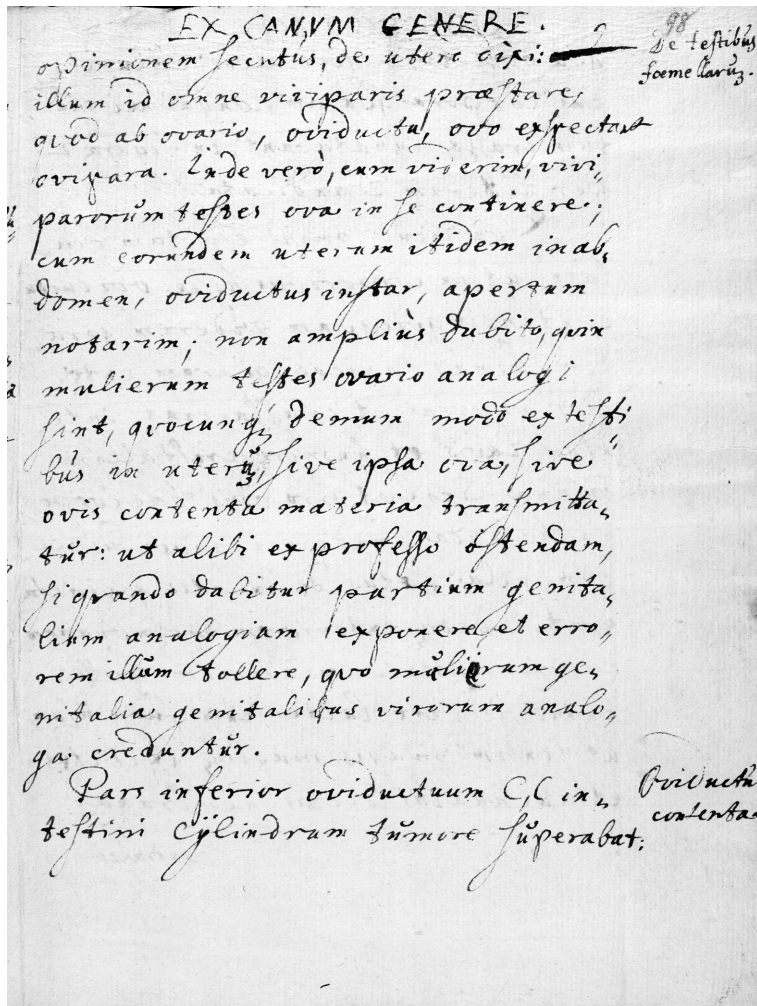 EX CANVM GENERE.
98
De testibus
foemellaruz.
opinionem secutus, de utero dixi:
illum id omne viviparis præstare,
quod ab ovario, oviductu, ovo exspectant
ovipara. Inde verò, cum viderim, vivi„
parorum testes ova in se continere;
cum eorundem uterum itidem in ab„
domen, oviductus instar, apertum
notarim; non ampliùs dubito, quin
mulierum testes ovario analogi
sint, quocunq; demum modo ex testi„
bus in uteruz, sive ipsa ova, sive
ovis contenta materia transmitta„
tur: ut alibi ex professo ostendam,
si quando dabitur partium genita„
lium analogiam exponere et erro„
rem illum tollere, quo mulierum ge„
nitalia genitalibus virorum analo„
ga creduntur.
Pars inferior oviductuum C,C in„
testini Cÿlindrum tumore superabat:
Oviductu
contenta.